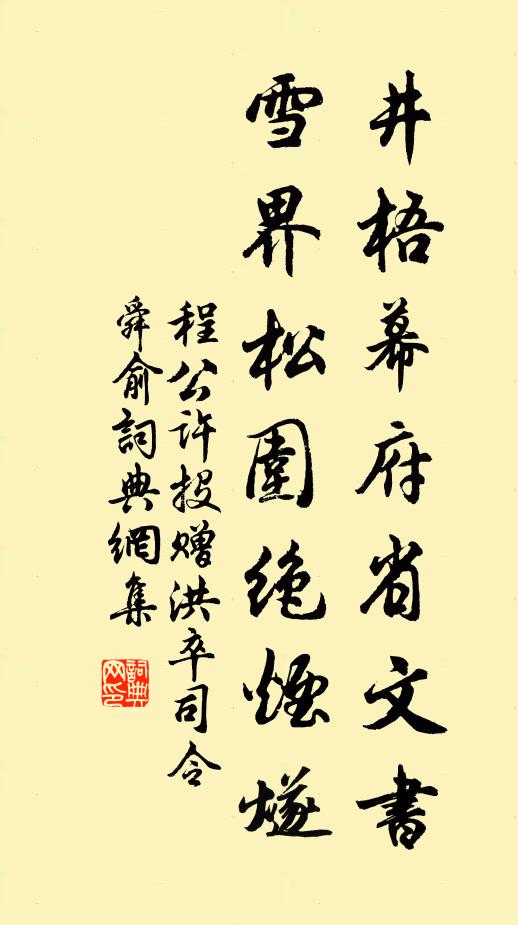 井梧幕府省文書
雪界松圍絶煙燧
程公許投贈洪卒司令
舜俞詞典網集
詞典网印